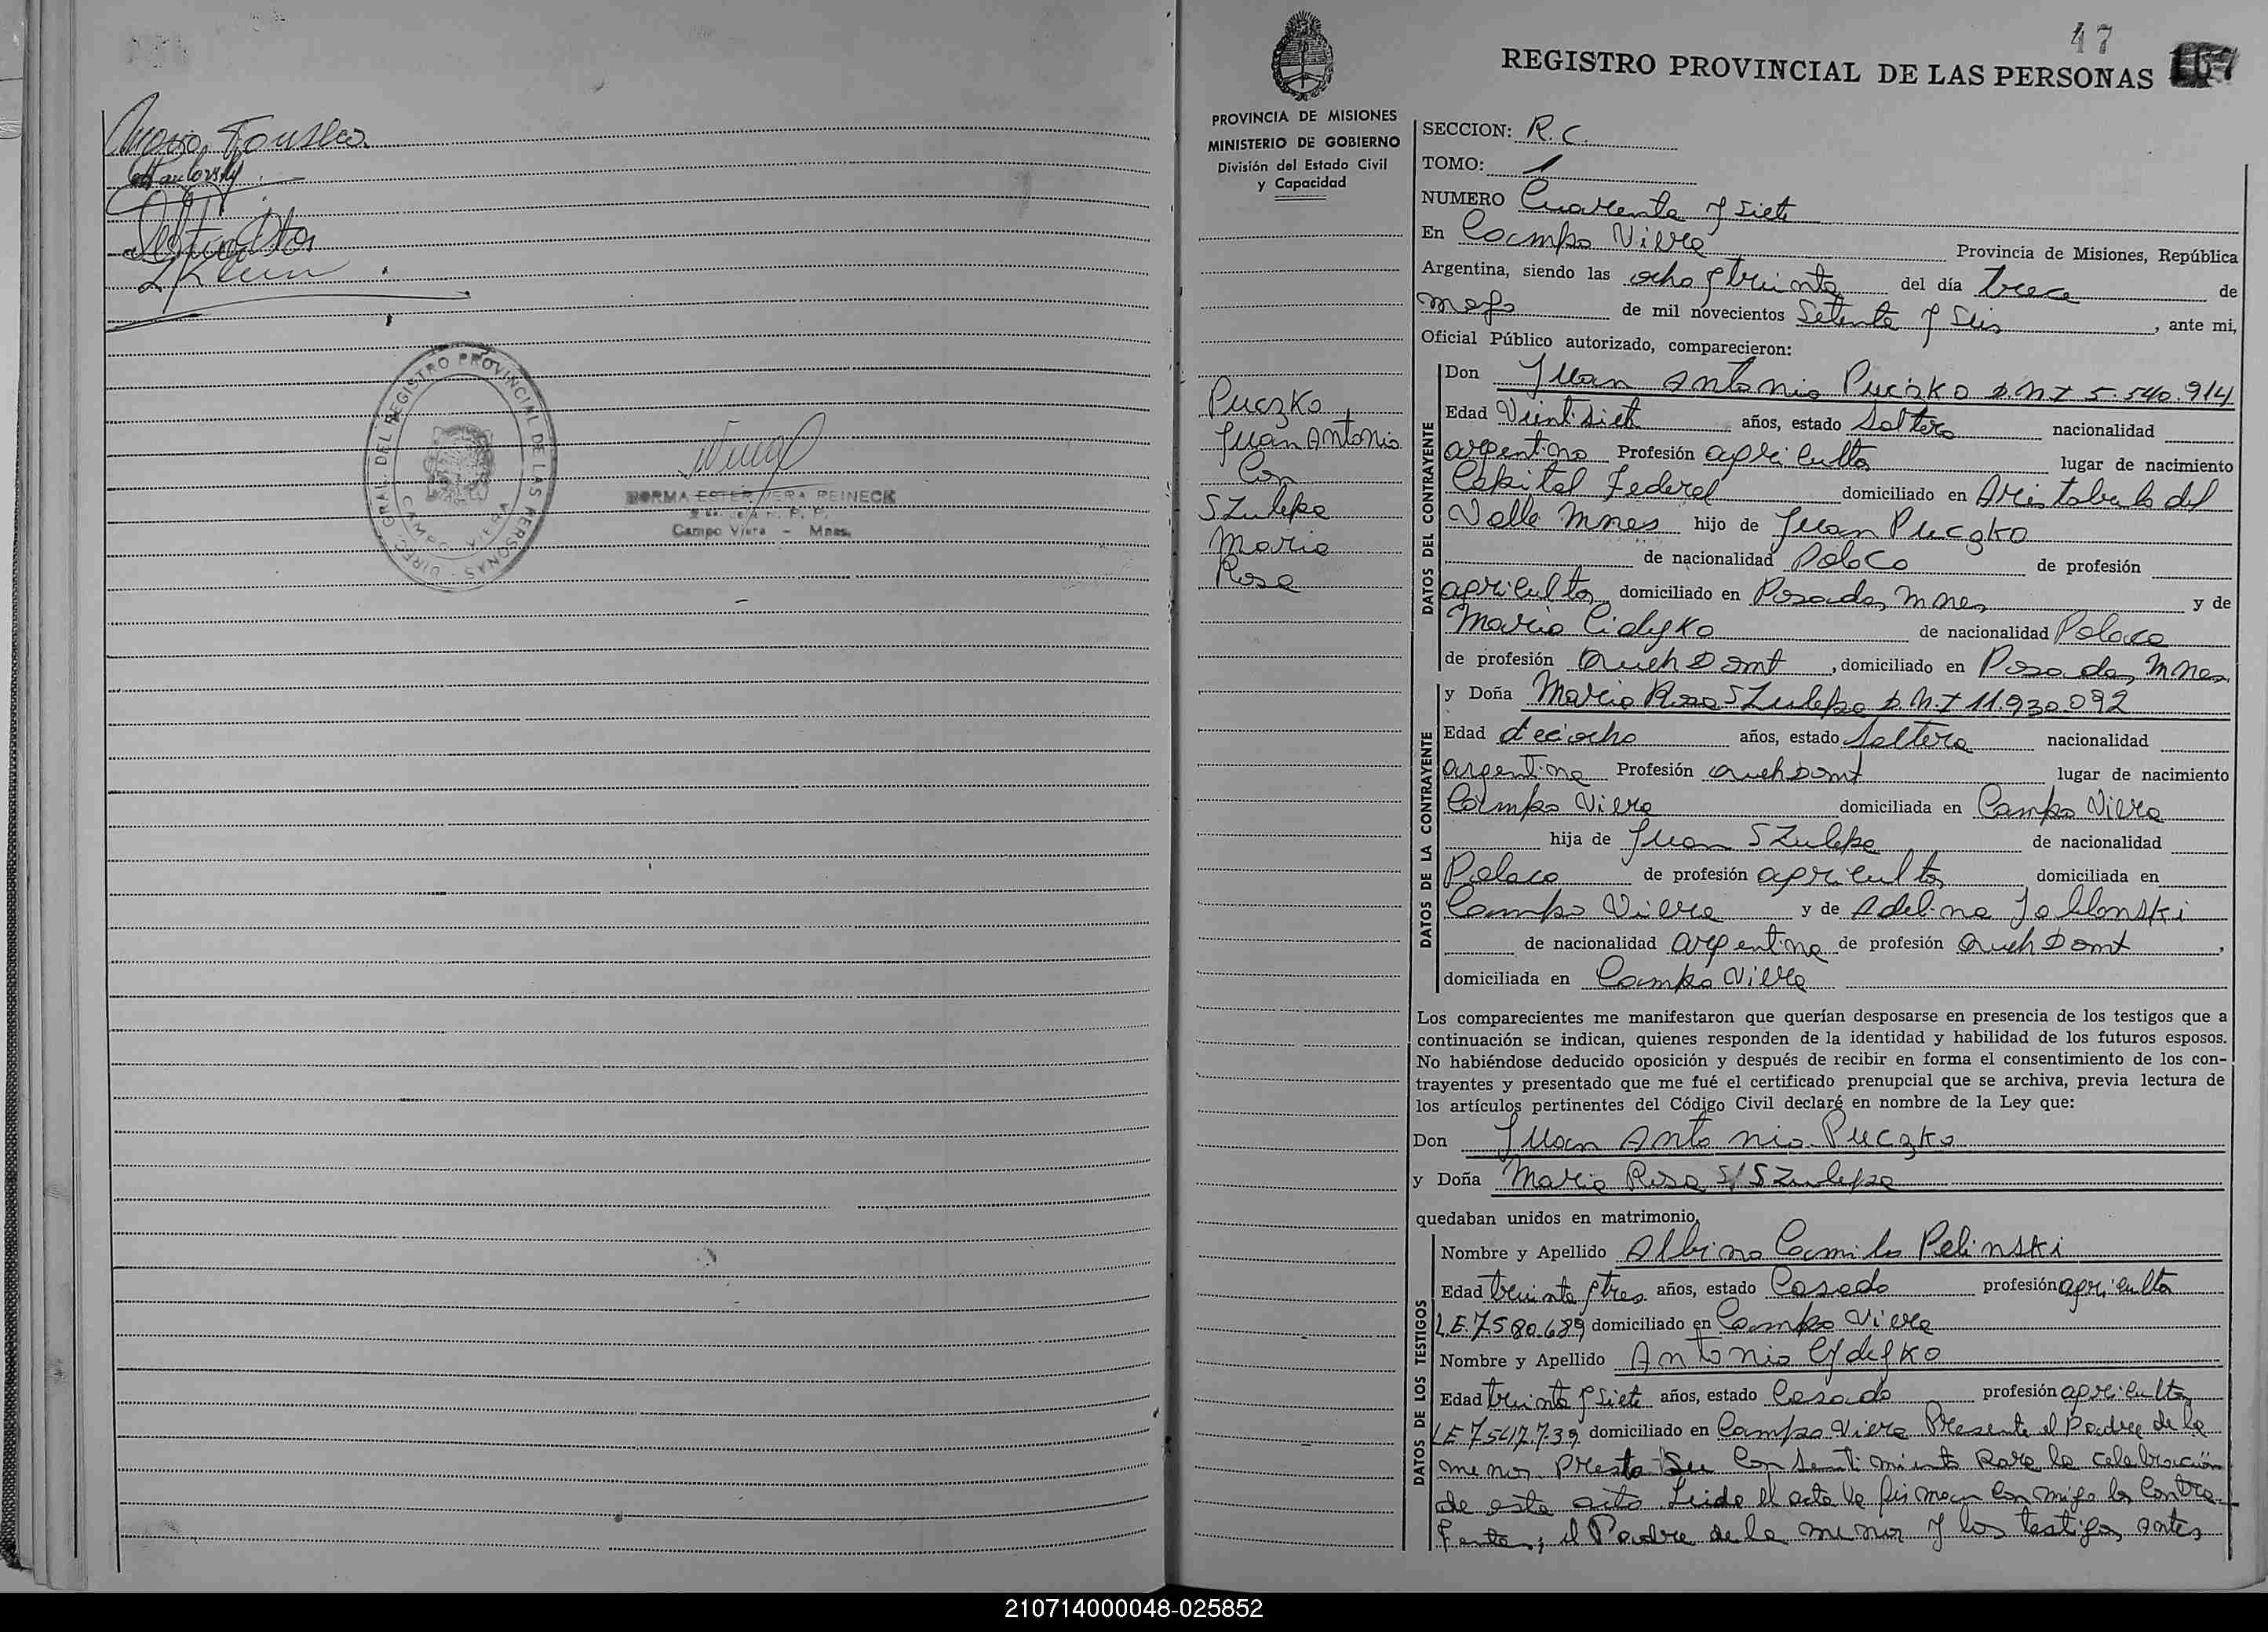 Maria Fonseca
LKlein
DIREC. GRAL. DEL REGISTRO PROVINCIAL DE LAS PERSONAS
CAMPO VIERA
NORMA ESTER VERA REINECK
Campo Viera - Mnes.
47
REGISTRO PROVINCIAL DE LAS PERSONAS 167
PROVINCIA DE MISIONES
MINISTERIO DE GOBIERNO
División del Estado Civil
y Capacidad
Puczko
Juan Antonio
Con
Szulepa
Maria
Rosa
SECCION: R.C.
TOMO: 1
NUMERO Cuarenta y siete
En Campo Viera Provincia de Misiones, República
Argentina, siendo las ocho y treinta del día trece de
mayo de mil novecientos Setenta y Seis, ante mi,
Oficial Público autorizado, comparecieron:
DATOS DEL CONTRAYENTE
Don Juan Antonio Puczko D.N.I 5.540.914
Edad Veintisiete años, estado Soltero nacionalidad
argentino Profesión agricultor lugar de nacimiento
Capital Federal domiciliado en Aristobulo del
Valle Mnes hijo de Juan Puczko
de nacionalidad Polaco de profesión
agricultor domiciliado en Posadas Mnes y de
Maria Cidyko de nacionalidad Polaca
de profesión Queh Domt, domiciliado en Posadas, Mnes
DATOS DE LA CONTRAYENTE
y Doña Maria Rosa Szulepa D.N.I 11.930.092
Edad dieciocho años, estado Soltera nacionalidad
argentina Profesión Queh Domt lugar de nacimiento
Campo Viera domiciliada en Campo Viera
hija de Juan Szulepa de nacionalidad
Polaco de profesión agricultor domiciliada en
Campo Viera y de Adelina Jablonski
de nacionalidad argentina de profesión Queh Domt,
domiciliada en Campo Viera
Los comparecientes me manifestaron que querían desposarse en presencia de los testigos que a
continuación se indican, quienes responden de la identidad y habilidad de los futuros esposos.
No habiéndose deducido oposición y después de recibir en forma el consentimiento de los con-
trayentes y presentado que me fué el certificado prenupcial que se archiva, previa lectura de
los artículos pertinentes del Código Civil declaré en nombre de la Ley que:
Don Juan Antonio Puczko
y Doña Maria Rosa Szulepa
quedaban unidos en matrimonio,
DATOS DE LOS TESTIGOS
Nombre y Apellido Albino Camilo Pelinski
Edad treinta y tres años, estado Casado profesión agricultor
L.E. 7.580.689 domiciliado en Campo Viera
Nombre y Apellido Antonio Cydyko
Edad treinta y siete años, estado Casado profesión agricultor
LE 7547.739 domiciliado en Campo Viera Presente el Padre de la
menor Presta Su Consentimiento Para la celebración
de este acto Leida el acta la firman Conmigo los Contra-
yentes; el Padre de la menor y los testigos antes
210714000048-025852